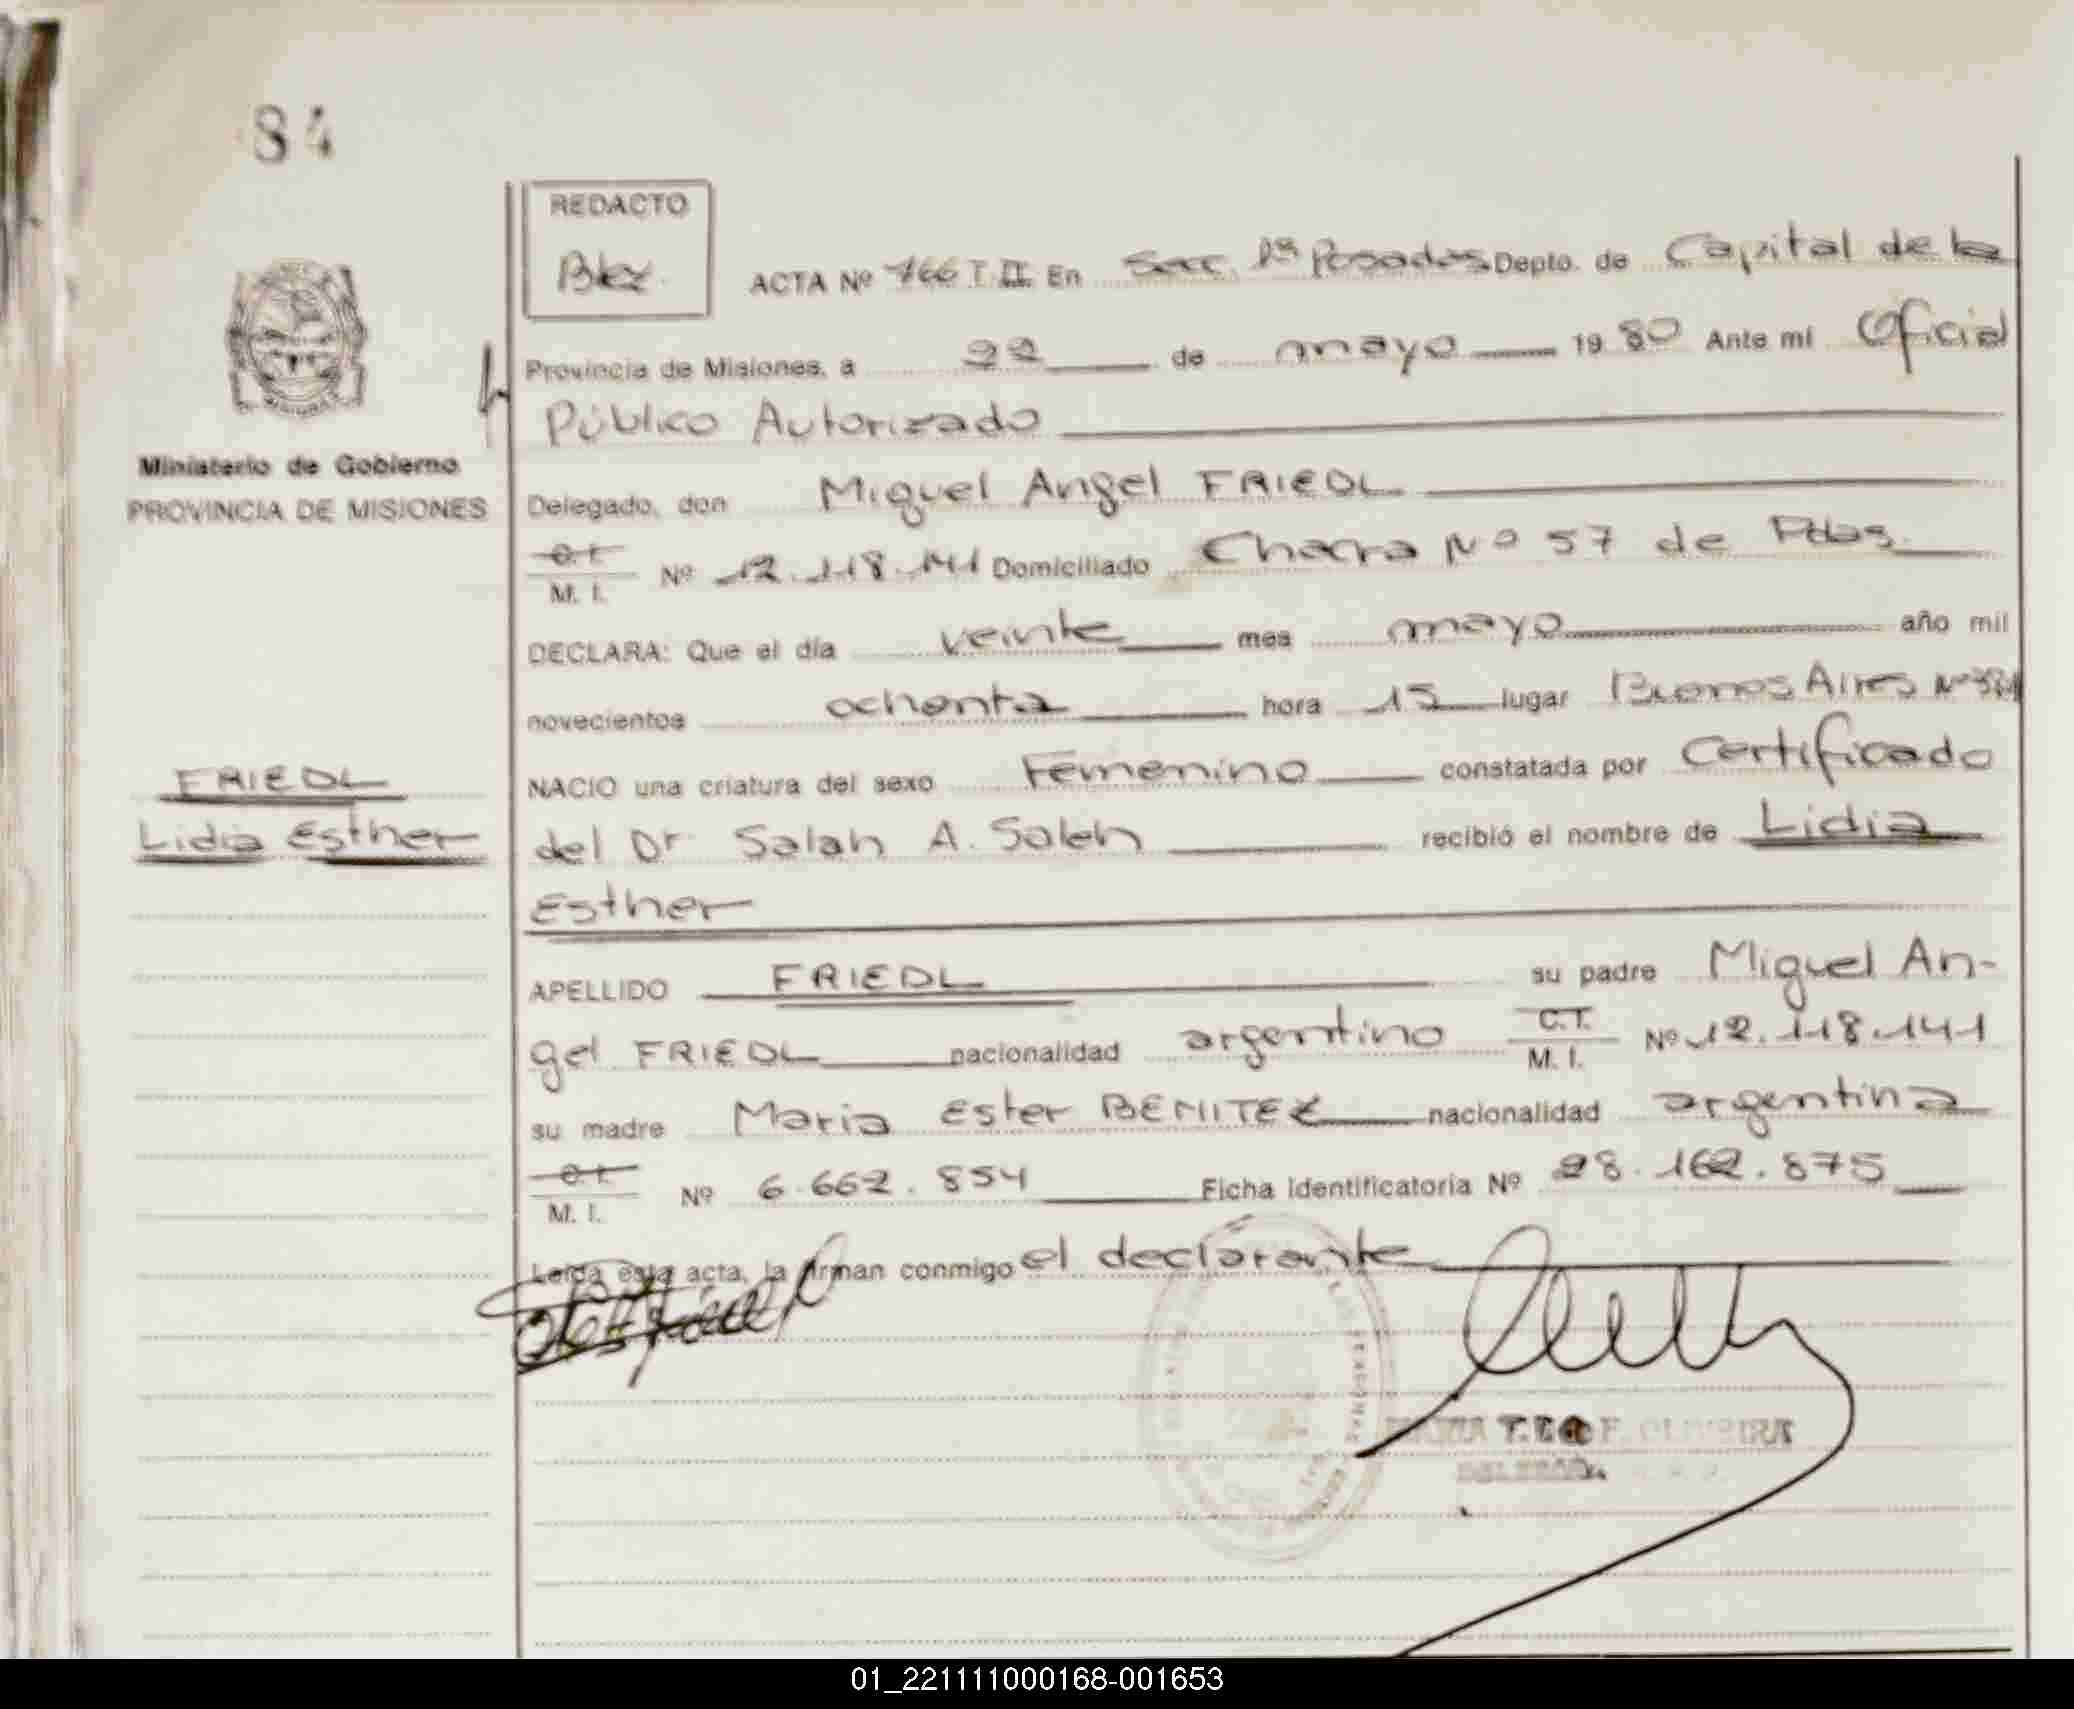 84
REDACTO
ACTA Nº 766 T. II. En Secc. 1ª Posadas Depto. de Capital de la
Provincia de Misiones, a 22 de mayo 1980 Ante mí Oficial
Público Autorizado
Ministerio de Gobierno
PROVINCIA DE MISIONES
Delegado, don Miguel Angel FRIEDL
C.I.
M. I. Nº 12.118.141 Domiciliado Chacra Nº 57 de Pdas.
DECLARA: Que el día veinte mes mayo año mil
novecientos ochenta hora 15 lugar Buenos Aires Nº
NACIO una criatura del sexo Femenino constatada por Certificado
FRIEDL
Lidia Esther
del Dr Salah A. Saleh recibió el nombre de Lidia
Esther
APELLIDO FRIEDL su padre Miguel An-
gel FRIEDL nacionalidad argentino C.I. M. I. Nº 12.118.141
su madre Maria Ester BENITEZ nacionalidad argentina
C.I.
M. I. Nº 6.662.854 Ficha Identificatoria Nº 28.162.875
Leída esta acta, la firman conmigo el declarante
01_221111000168-001653